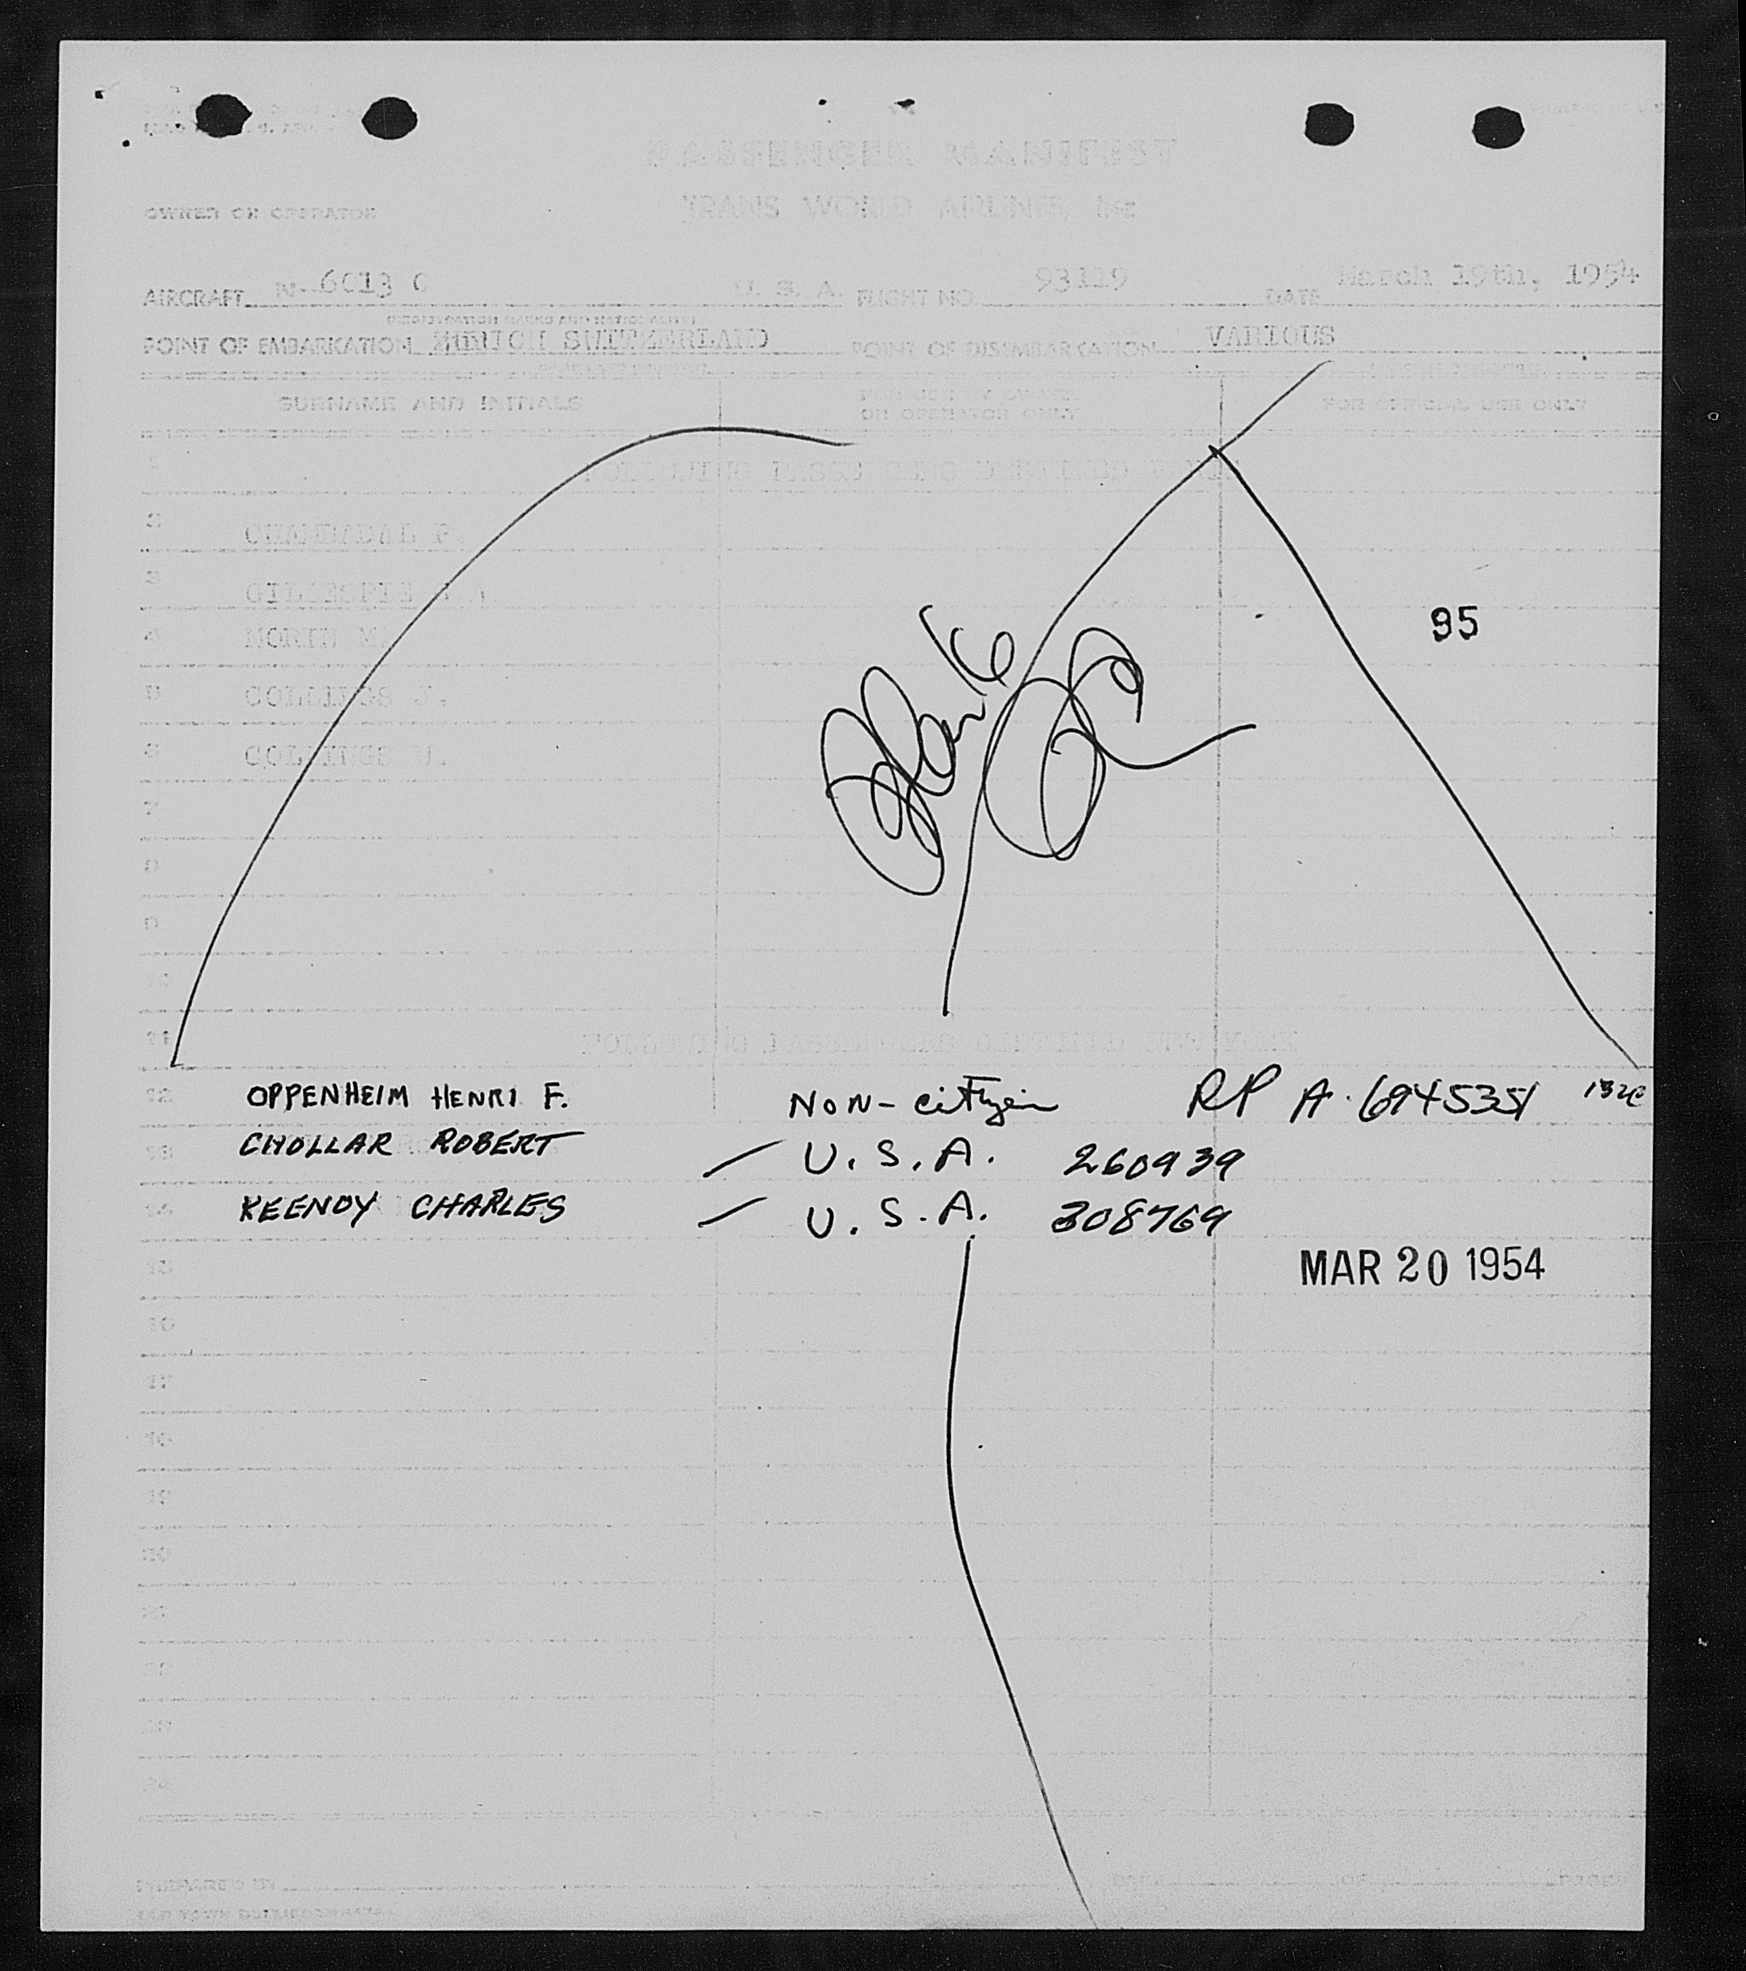 PASSENGER MANIFEST
OWNER OR OPERATOR TRANS WORLD AIRLINES, Inc
AIRCRAFT N- 6013 C U. S. A. FLIGHT NO. 93119 DATE March 19th, 1954
(REGISTRATION MARKS AND NATIONALITY)
POINT OF EMBARKATION ZURICH SWITZERLAND POINT OF DISEMBARKATION VARIOUS
SURNAME AND INITIALS FOR USE BY OWNER OR OPERATOR ONLY FOR OFFICIAL USE ONLY
FOLLOWING PASSENGERS
2
3 GILLESPIE
4 NORTH M.
5 COLLINGS J.
6 COLLINGS
7
8
9
10
95
11 FOLLOWING PASSENGERS
12 OPPENHEIM HENRI F. NON-citizen RP A. 6945351
13 CHOLLAR ROBERT U.S.A. 260939
14 KEENOY CHARLES U.S.A. 308769
15 MAR 20 1954
16
17
18
19
20
21
22
23
24
PREPARED BY PAGE OF PAGES